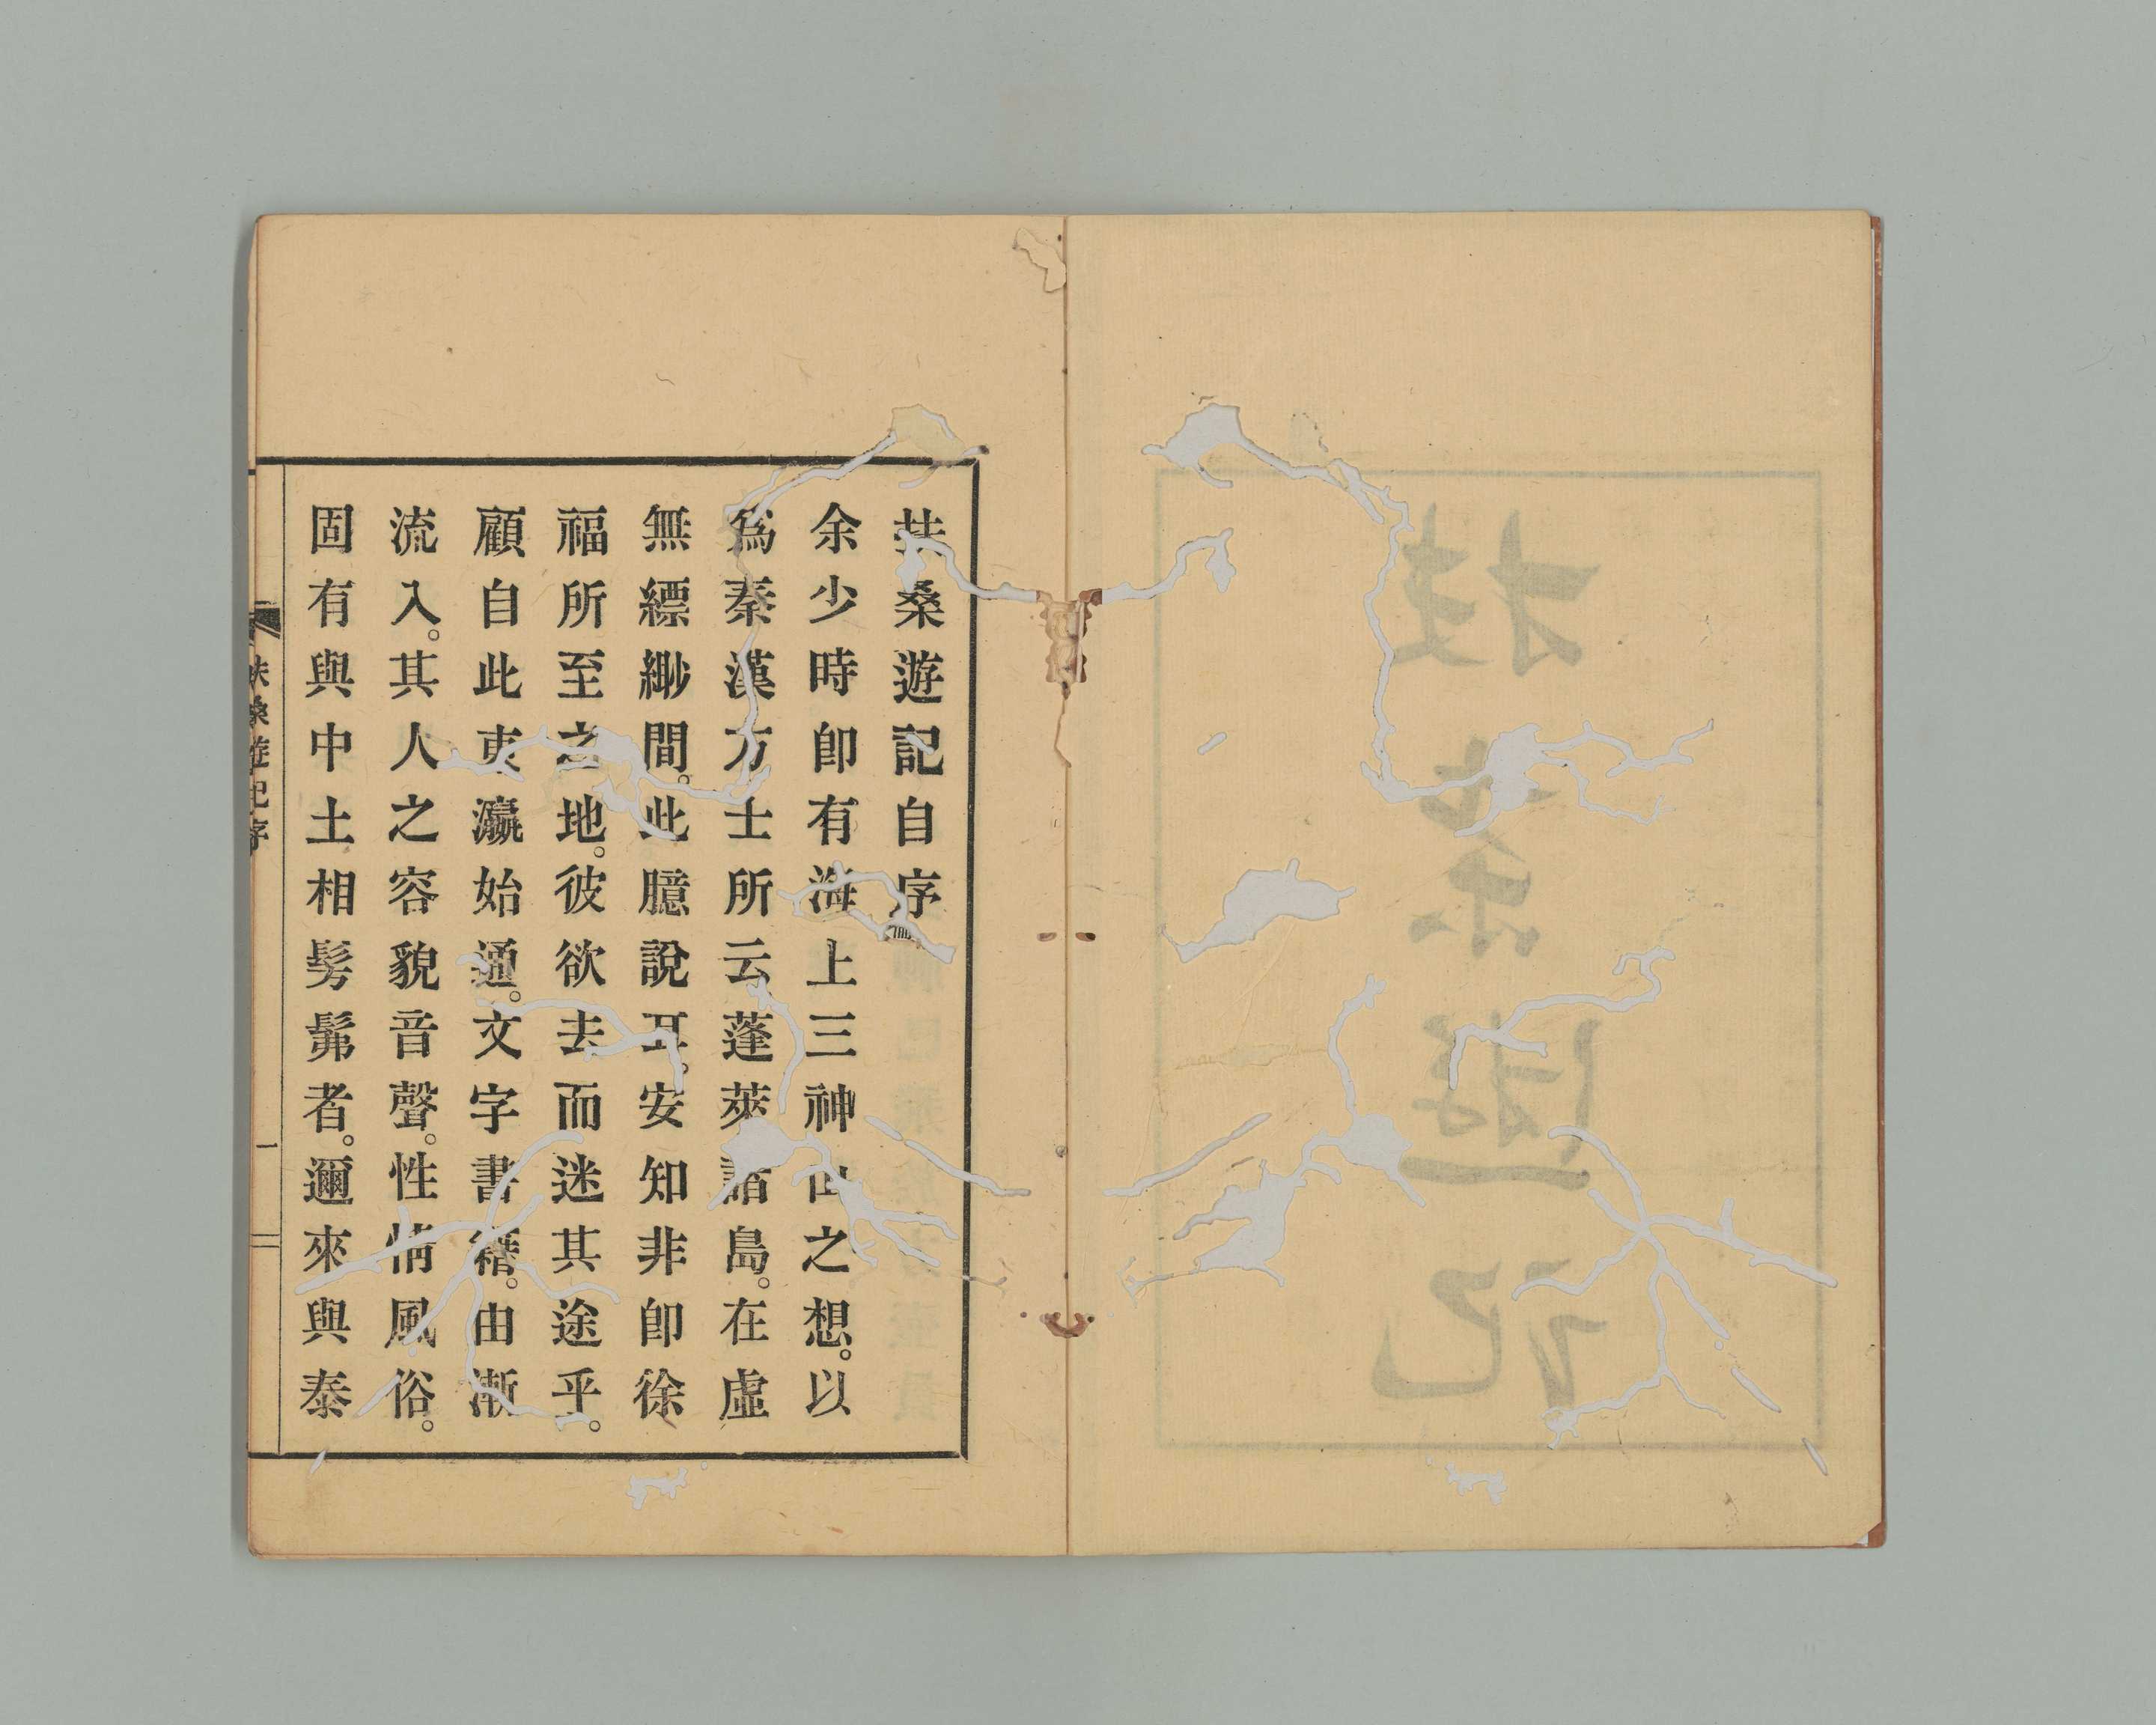 扶桑遊記自序
余少時卽有海上三神山之想。以
爲秦漢方士所云蓬萊諸島。在虛
無縹緲間。此臆說耳。安知非卽徐
福所至之地。彼欲去而迷其途乎。
顧自此東瀛始通。文字書籍。由漸
流入。其人之容貌音聲。性情風俗。
固有與中土相髣髴者。邇來與泰
扶桑遊記序
一